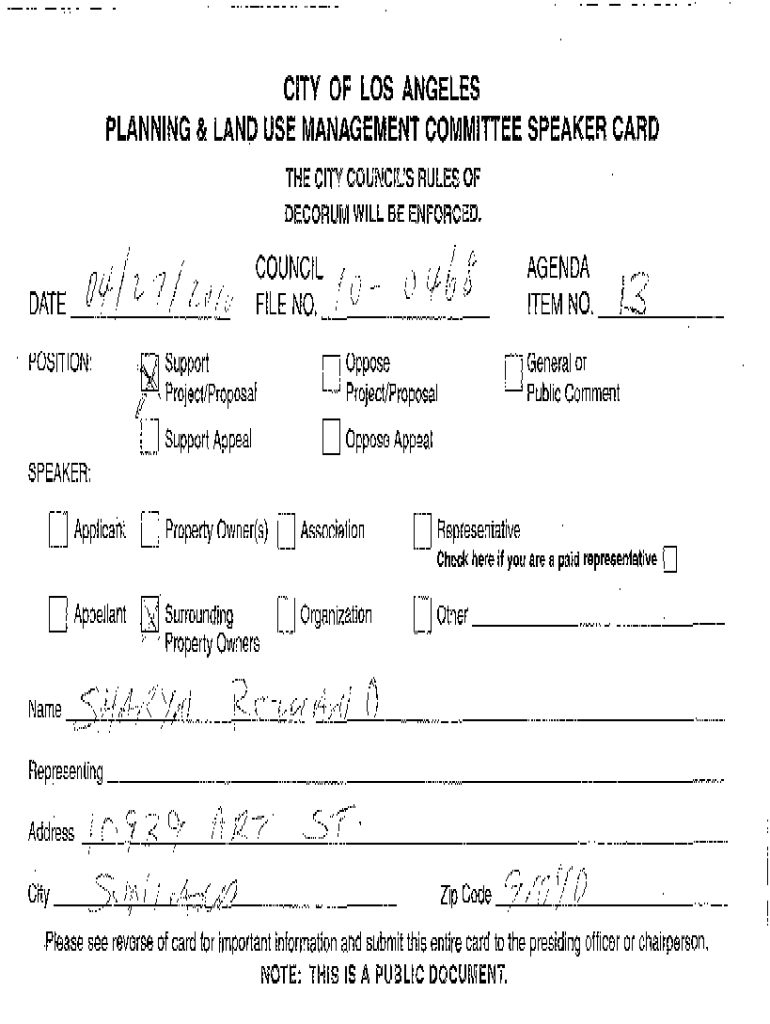 CITY OF LOS ANGELES
PLANNING & LAND USE MANAGEMENT COMMITTEE SPEAKER CARD
THE CITY COUNCIL'S RULES OF
DECORUM WILL BE ENFORCED.
DATE 04/27/2010 COUNCIL FILE NO. 10-0468 AGENDA ITEM NO. 13
POSITION: Support Project/Proposal Oppose Project/Proposal General or Public Comment
Support Appeal Oppose Appeal
SPEAKER:
Applicant Property Owner(s) Association Representative
Check here if you are a paid representative
Appellant Surrounding Property Owners Organization Other
Name SHARYN
Representing
Address 10939 ART ST.
City Zip Code
Please see reverse of card for important information and submit this entire card to the presiding officer or chairperson.
NOTE: THIS IS A PUBLIC DOCUMENT.